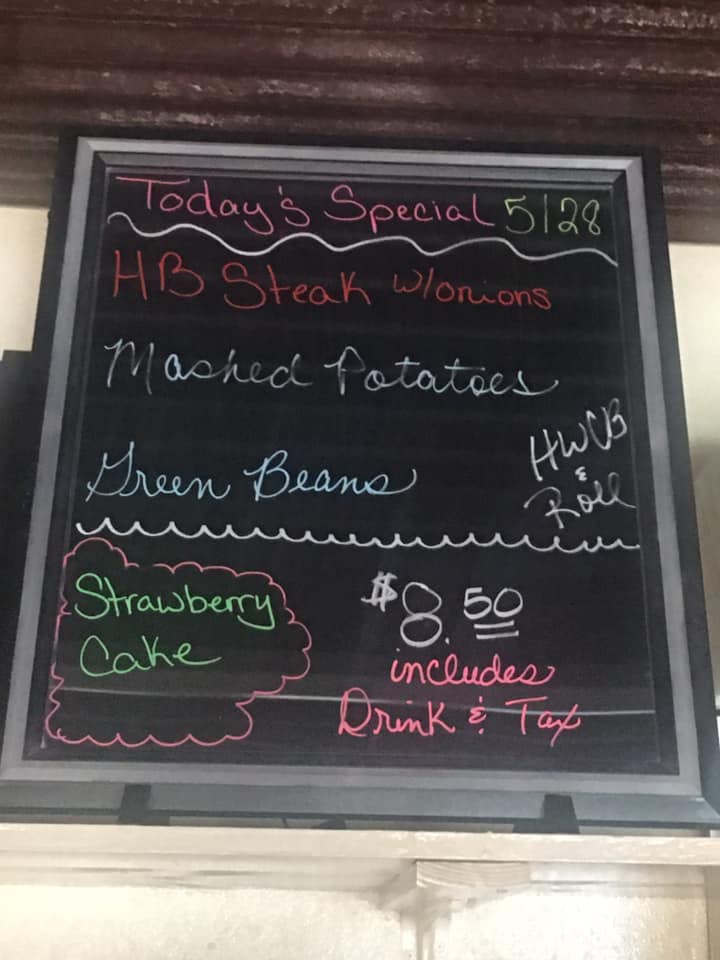 Today's Special 5/28
HB Steak w/onions
Mashed Potatoes
Green Beans
HWCB
&
Roll
Strawberry
Cake
$8.50
includes
Drink & Tax